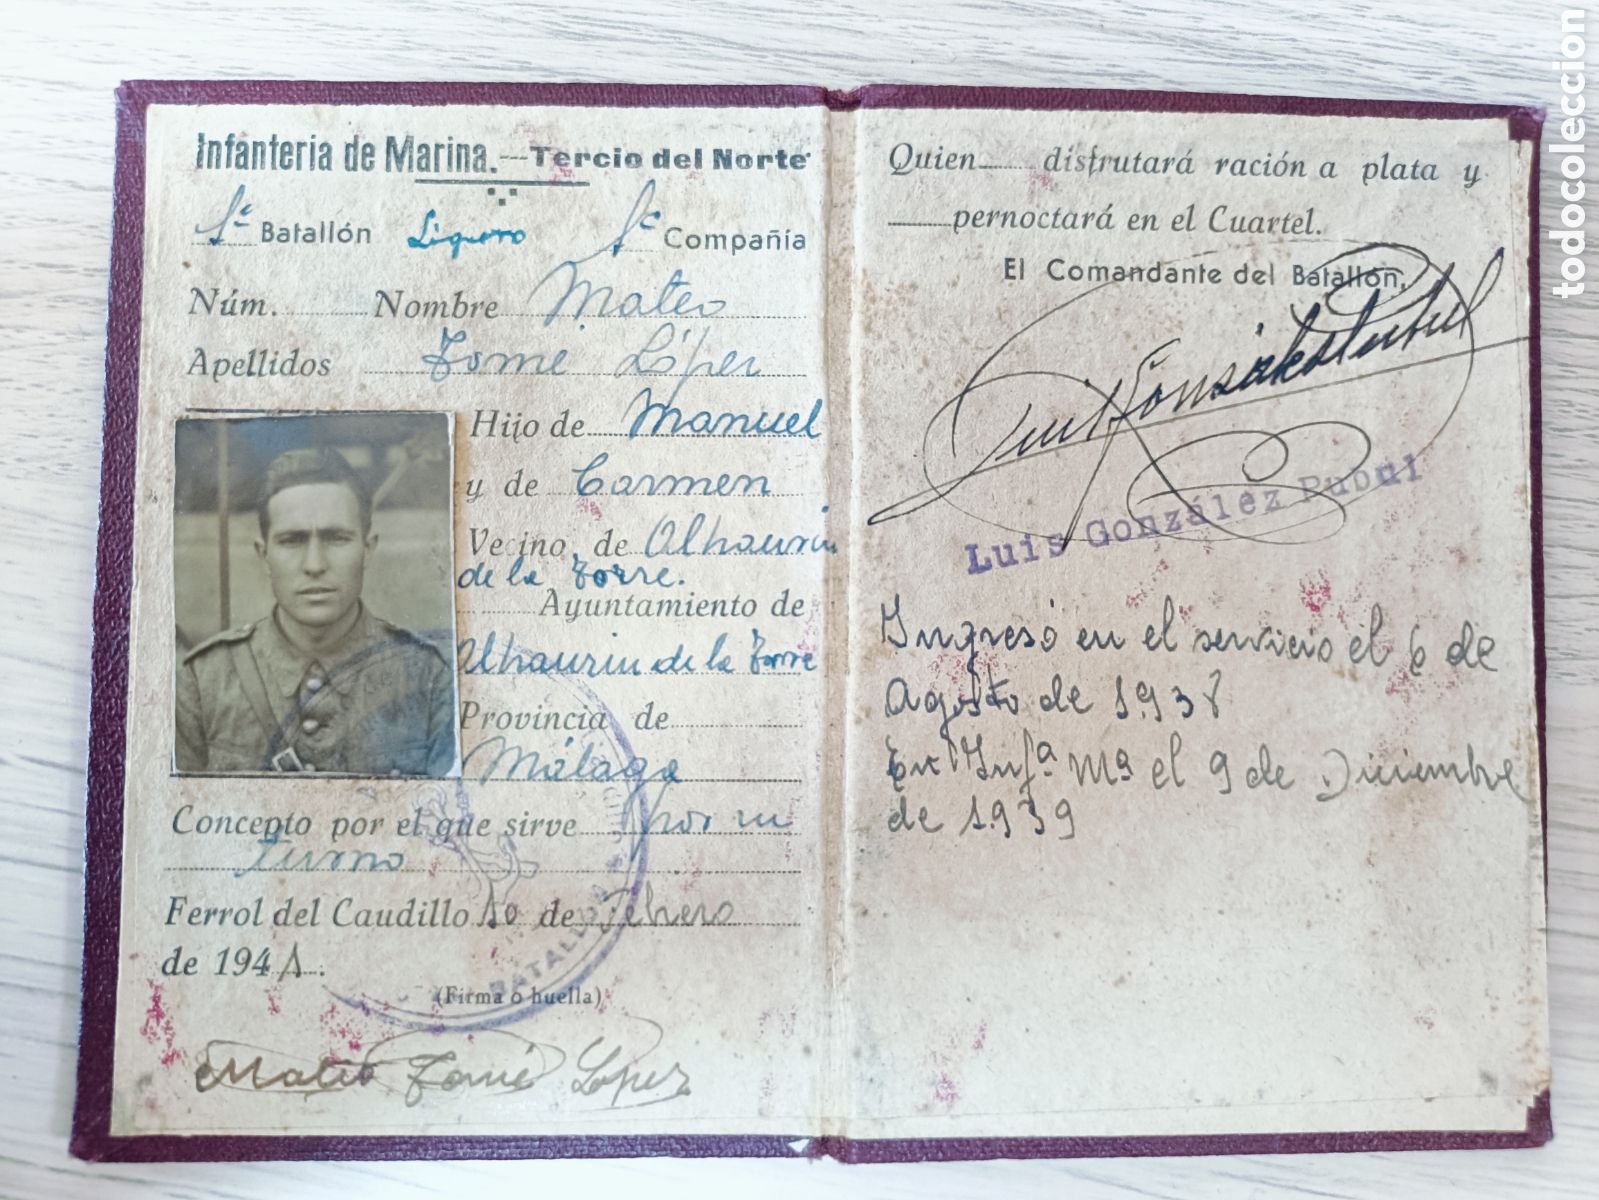 Infantería de Marina.---Tercio del Norte
1º Batallón Ligero 1ª Compañía
Núm. Nombre Mateo
Apellidos Tomé López
Hijo de Manuel
y de Carmen
Vecino de Alhaurin
de la Torre.
Ayuntamiento de
Alhaurin de la Torre
Provincia de
Málaga
Concepto por el que sirve por su
turno
Ferrol del Caudillo 10 de Febrero
de 1941.
(Firma o huella)
Mateo Tomé López
BATALLON
Quien disfrutará ración a plata y
pernoctará en el Cuartel.
El Comandante del Batallón,
Luis González Pubul
Luis González Pubul
Ingresó en el servicio el 6 de
Agosto de 1.938
En Infª Mª el 9 de Diciembre
de 1.939
todocoleccion